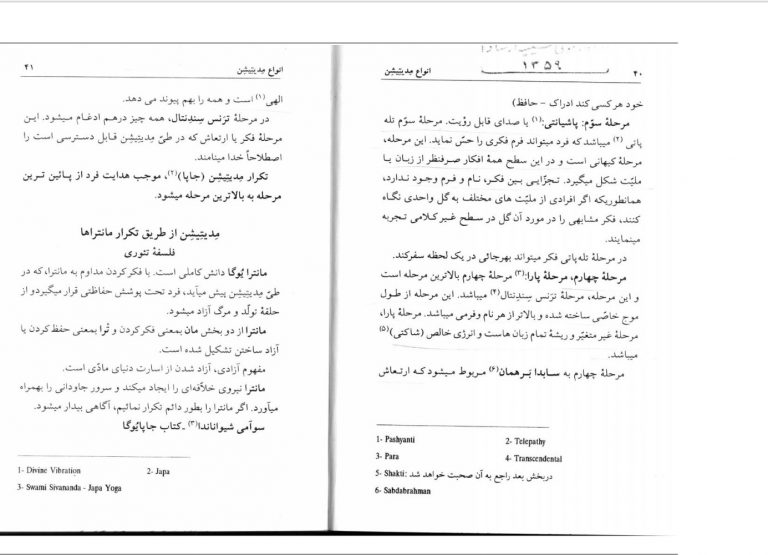 ۱۳۵۹
۴۰
انواع مِدیتیشِن
خود هرکسی کند ادراک – حافظ)
مرحلهٔ سوّم: پاشیانتی:(۱) یا صدای قابل رؤیت. مرحلهٔ سوّم تله
پاتی (۲) میباشد که فرد میتواند فرم فکری را حسّ نماید. این مرحله،
مرحلهٔ کیهانی است و در این سطح همهٔ افکار صرفنظر از زبان یا
ملیّت شکل میگیرد. تجزّایی بین فکر، نام و فرم وجود ندارد،
همانطوریکه اگر افرادی از ملیّت های مختلف به گل واحدی نگاه
کنند، فکر مشابهی را در مورد آن گل در سطح غیرکلامی تجربه
مینمایند.
در مرحلهٔ تله‌پاتی فکر میتواند بهرجائی در یک لحظه سفرکند.
مرحلهٔ چهارم، مرحلهٔ پارا:(۳) مرحلهٔ چهارم بالاترین مرحله است
و این مرحله، مرحلهٔ ترَنس سِندِنتال(۴) میباشد. این مرحله از طول
موج خاصّی ساخته شده و بالاتر از هر نام و فرمی میباشد. مرحلهٔ پارا،
مرحلهٔ غیر متغیّر و ریشهٔ تمام زبان هاست و انرژی خالص (شاکتی)(۵)
میباشد.
مرحلهٔ چهارم به سابدا بَرهمان(۶) مربوط میشود که ارتعاش
1- Pashyanti 2- Telepathy
3- Para 4- Transcendental
5- Shakti: دربخش بعد راجع به آن صحبت خواهد شد
6- Sabdabrahman
انواع مِدیتیشِن
۴۱
الهی(۱) است و همه را بهم پیوند می دهد.
در مرحلهٔ ترَنس سِندِنتال، همه چیز درهم ادغام میشود. این
مرحلهٔ فکر یا ارتعاش که در طیّ مِدیتیشِن قابل دسترسی است را
اصطلاحاً خدا مینامند.
تکرار مِدیتیشِن (جاپا)(۲)، موجب هدایت فرد از پائین ترین
مرحله به بالاترین مرحله میشود.
مِدیتیشِن از طریق تکرار مانتراها
فلسفهٔ تئوری
مانترا یُوگا دانش کاملی است. با فکرکردن مداوم به مانترا،که در
طیّ مِدیتیشِن پیش میآید، فرد تحت پوشش حفاظتی قرار میگیردو از
حلقهٔ تولّد و مرگ آزاد میشود.
مانترا از دو بخش مان بمعنی فکرکردن و تُرا بمعنی حفظ‌کردن یا
آزاد ساختن تشکیل شده است.
مفهوم آزادی، آزاد شدن از اسارت دنیای مادّی است.
مانترا نیروی خلاّقه‌ای را ایجاد میکند و سرور جاودانی را بهمراه
میآورد. اگر مانترا را بطور دائم تکرار نمائیم، آگاهی بیدار میشود.
سوآمی شیواناندا(۳) ـکتاب جاپایُوگا
1- Divine Vibration 2- Japa
3- Swami Sivananda - Japa Yoga